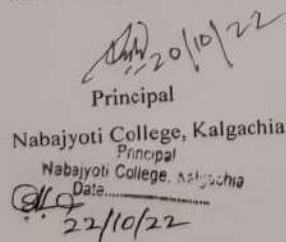 20/10/22
Principal
Nabajyoti College, Kalgachia
Principal
Nabajyoti College, Kalgachia
Date..................
22/10/22